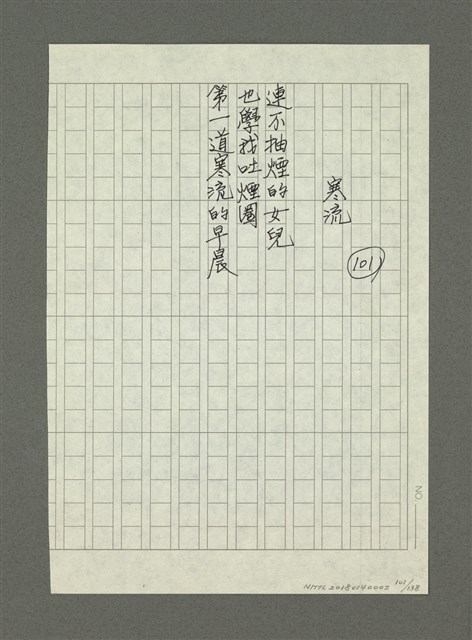 寒流
101
連不抽煙的女兒
也學我吐煙圈
第一道寒流的早晨
NO
NMTL20180140002 101/138